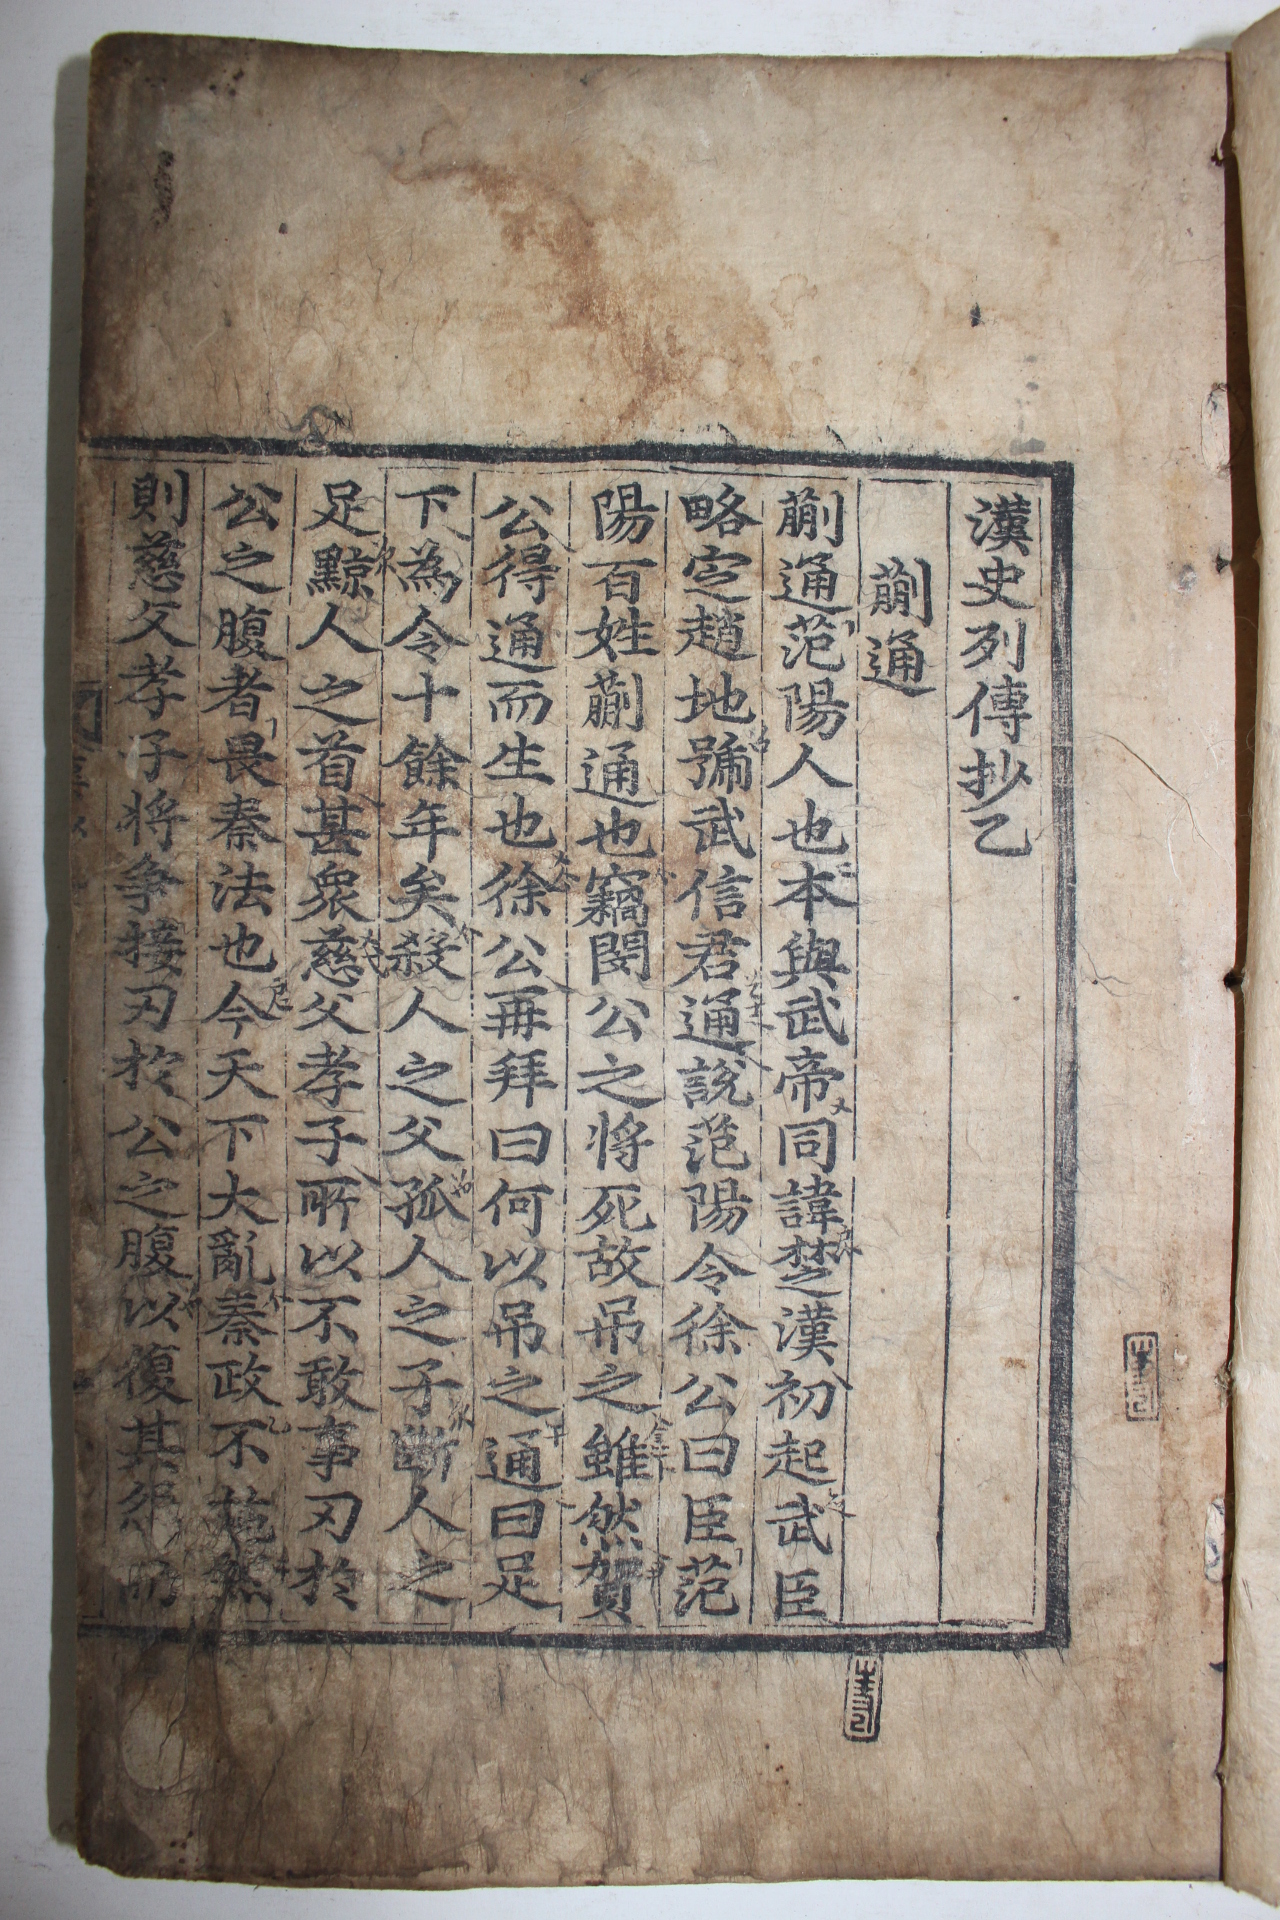 漢史列傳抄乙
蒯通
蒯通范陽人也本與武帝同諱楚漢初起武臣
略定趙地號武信君通說范陽令徐公曰臣范
陽百姓蒯通也竊閔公之將死故吊之雖然賀
公得通而生也徐公再拜曰何以吊之通曰足
下為令十餘年矣殺人之父孤人之子斷人之
足黥人之首甚衆慈父孝子所以不敢事刃於
公之腹者畏秦法也今天下大亂秦政不施然
則慈父孝子將爭接刃於公之腹以復其怨